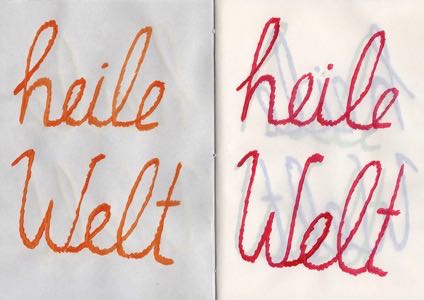 heile
Welt
heile
Welt